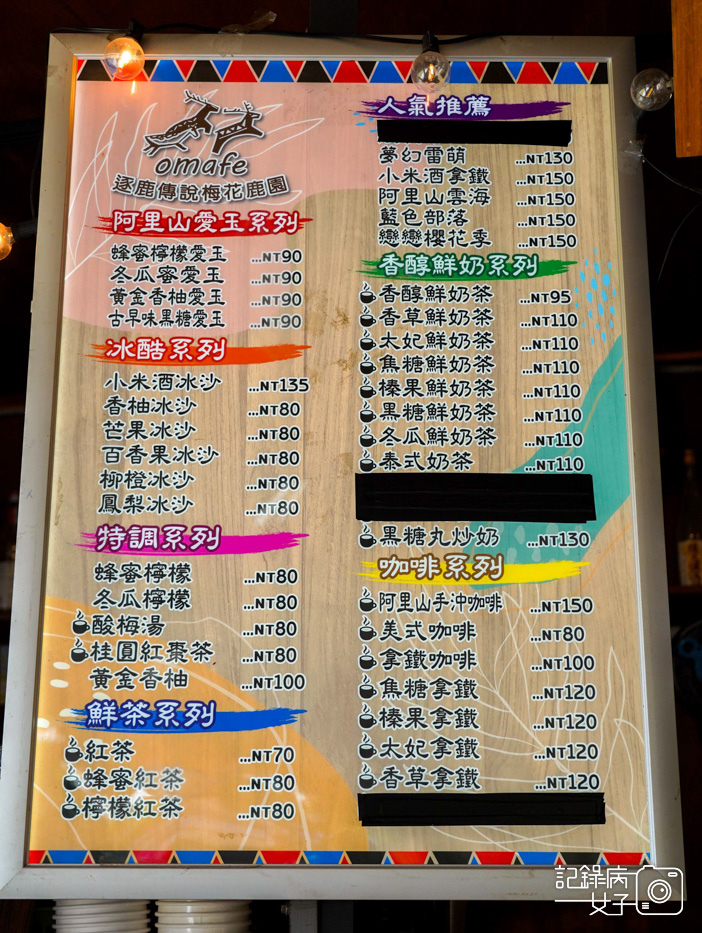 omafe
逐鹿傳說梅花鹿園
阿里山愛玉系列
蜂蜜檸檬愛玉 ...NT90
冬瓜蜜愛玉 ...NT90
黃金香柚愛玉 ...NT90
古早味黑糖愛玉 ...NT90
冰酷系列
小米酒冰沙 ...NT135
香柚冰沙 ...NT80
芒果冰沙 ...NT80
百香果冰沙 ...NT80
柳橙冰沙 ...NT80
鳳梨冰沙 ...NT80
特調系列
蜂蜜檸檬 ...NT80
冬瓜檸檬 ...NT80
酸梅湯 ...NT80
桂圓紅棗茶 ...NT80
黃金香柚 ...NT100
鮮茶系列
紅茶 ...NT70
蜂蜜紅茶 ...NT80
檸檬紅茶 ...NT80
人氣推薦
夢幻雷萌 ...NT130
小米酒拿鐵 ...NT150
阿里山雲海 ...NT150
藍色部落 ...NT150
戀戀櫻花季 ...NT150
香醇鮮奶系列
香醇鮮奶茶 ...NT95
香草鮮奶茶 ...NT110
太妃鮮奶茶 ...NT110
焦糖鮮奶茶 ...NT110
榛果鮮奶茶 ...NT110
黑糖鮮奶茶 ...NT110
冬瓜鮮奶茶 ...NT110
泰式奶茶 ...NT110
黑糖丸炒奶 ...NT130
咖啡系列
阿里山手沖咖啡 ...NT150
美式咖啡 ...NT80
拿鐵咖啡 ...NT100
焦糖拿鐵 ...NT120
榛果拿鐵 ...NT120
太妃拿鐵 ...NT120
香草拿鐵 ...NT120
記錄病
女子